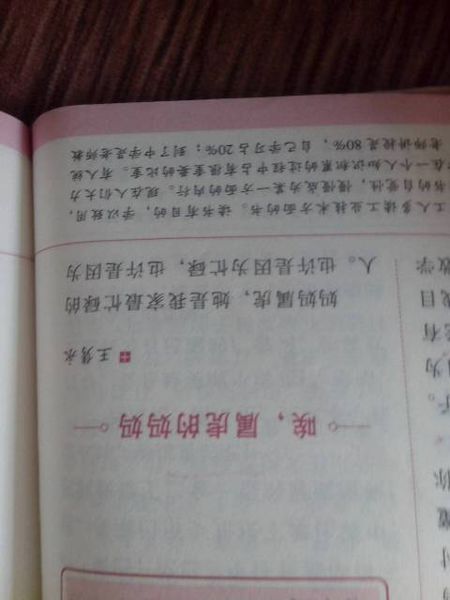 唉，属虎的妈妈
王隽永
妈妈属虎，她是我家最忙碌的
人。也许是因为忙碌，也许是因为
工人多读工业技术方面的书。读书有目的，学以致用，
书的自觉性，慢慢成为某一方面的内行。现在人们大力
在一个人知识积累的过程中占有很重要的比重。有人统
老师讲授是80%，自己学习占20%；到了中学是老师教